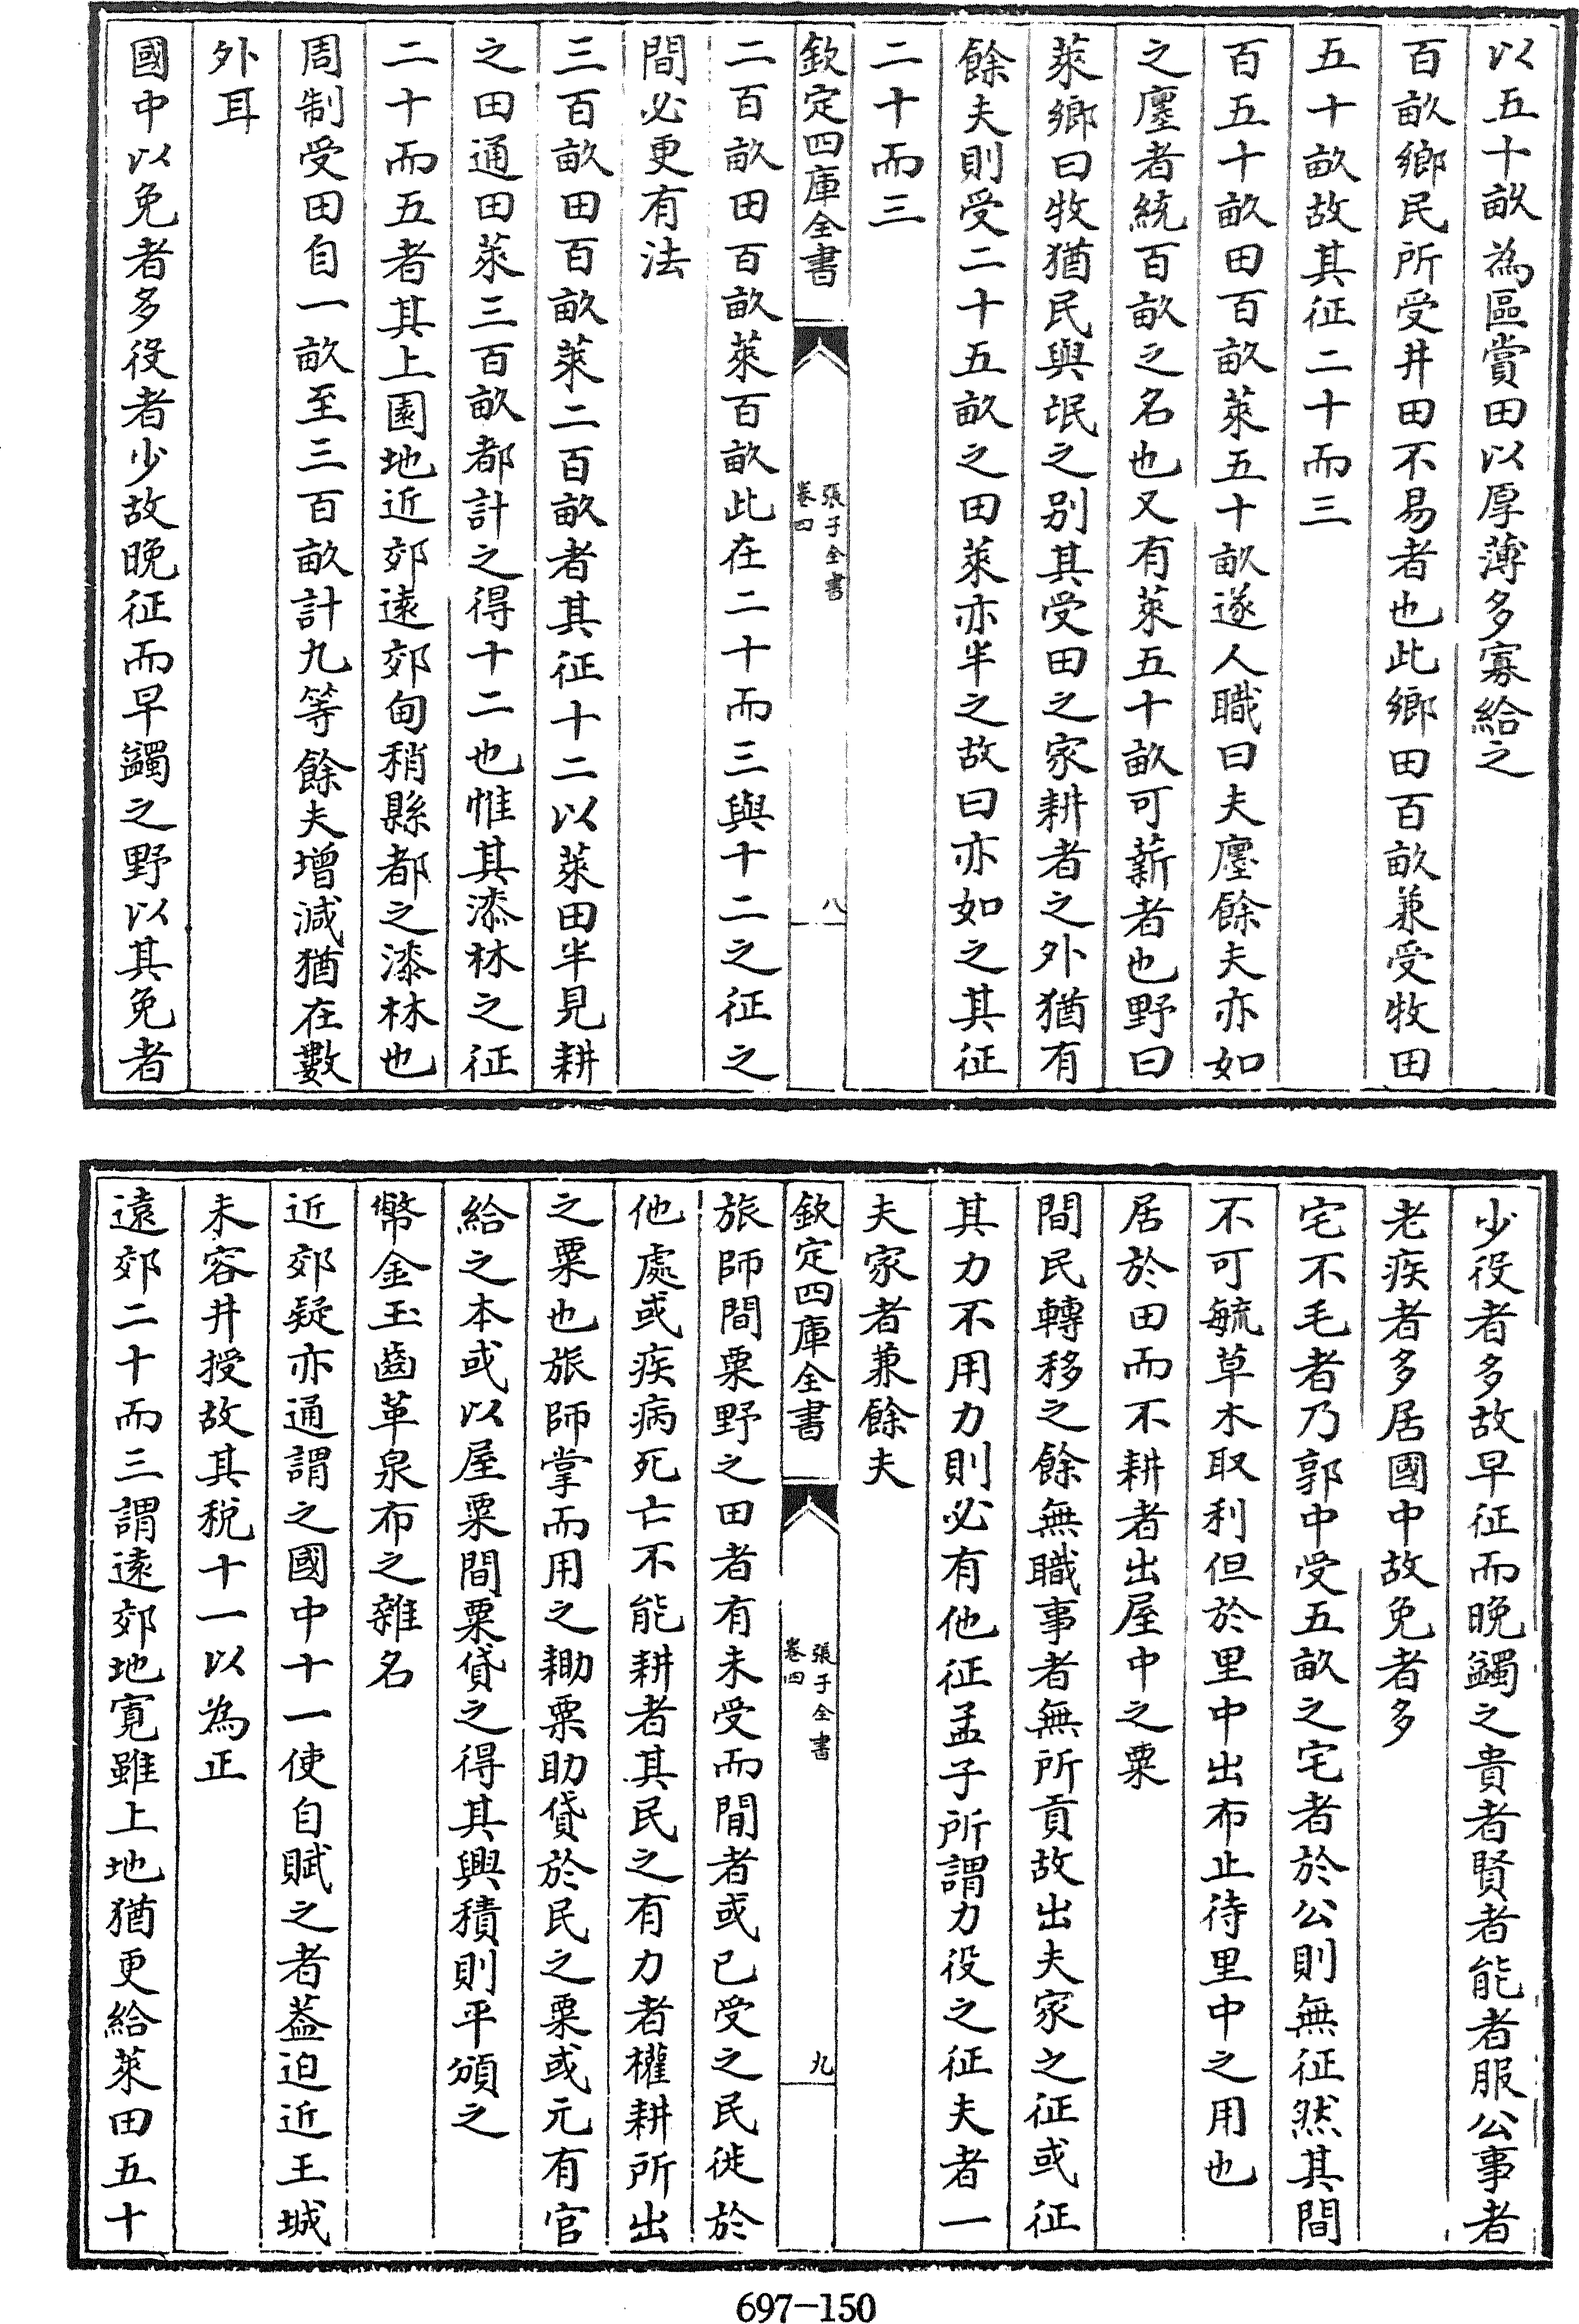 以五十畝為區賞田以厚薄多寡給之
百畝鄉民所受井田不易者也此鄉田百畝兼受牧田
五十畝故其征二十而三
百五十畝田百畝萊五十畝遂人職曰夫廛餘夫亦如
之廛者統百畝之名也又有萊五十畝可薪者也野曰
萊鄉曰牧猶民與氓之别其受田之家耕者之外猶有
餘夫則受二十五畝之田萊亦半之故曰亦如之其征
二十而三
欽定四庫全書
張子全書
卷四
八
二百畝田百畝萊百畝此在二十而三與十二之征之
間必更有法
三百畝田百畝萊二百畝者其征十二以萊田半見耕
之田通田萊三百畝都計之得十二也惟其漆林之征
二十而五者其上園地近郊遠郊甸稍縣都之漆林也
周制受田自一畝至三百畝計九等餘夫增減猶在數
外耳
國中以免者多役者少故晚征而早蠲之野以其免者
少役者多故早征而晚蠲之貴者賢者能者服公事者
老疾者多居國中故免者多
宅不毛者乃郭中受五畝之宅者於公則無征然其間
不可毓草木取利但於里中出布止待里中之用也
居於田而不耕者出屋中之粟
間民轉移之餘無職事者無所貢故出夫家之征或征
其力不用力則必有他征孟子所謂力役之征夫者一
夫家者兼餘夫
欽定四庫全書
張子全書
卷四
九
旅師間粟野之田者有未受而閒者或已受之民徙於
他處或疾病死亡不能耕者其民之有力者權耕所出
之粟也旅師掌而用之耡粟助貸於民之粟或元有官
給之本或以屋粟間粟貸之得其興積則平頒之
幣金玉齒革泉布之雜名
近郊疑亦通謂之國中十一使自賦之者葢迫近王城
未容井授故其税十一以為正
遠郊二十而三謂遠郊地寛雖上地猶更給萊田五十
697-150